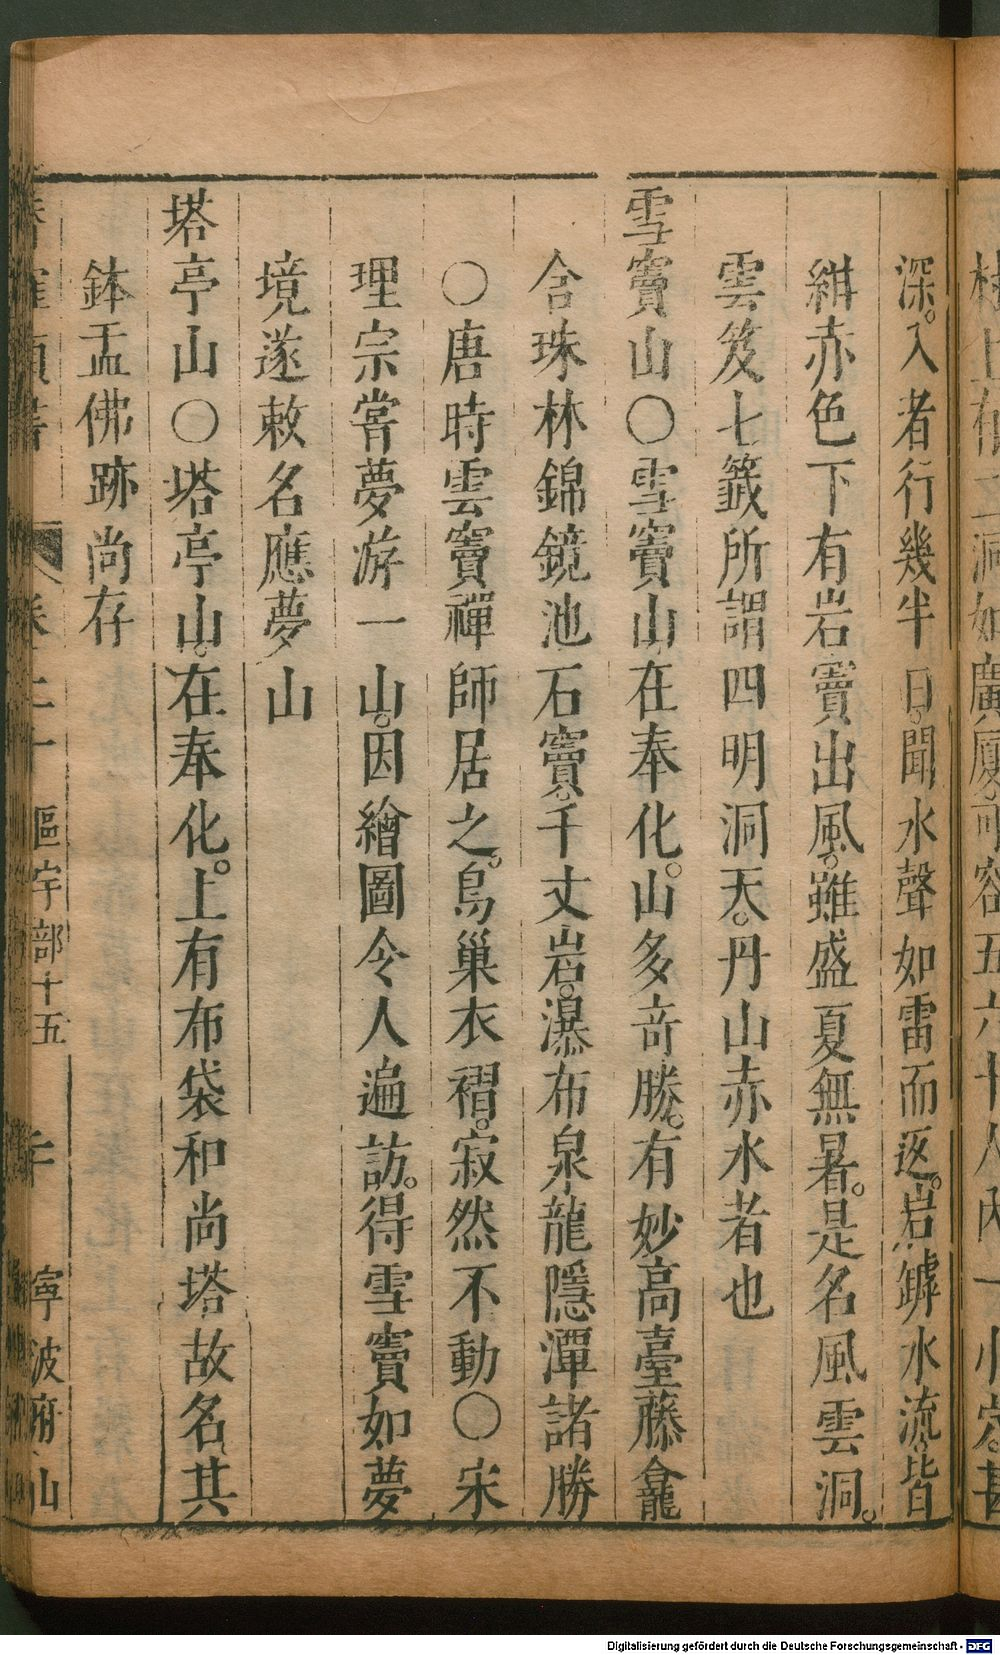 桂上在二洞如廣廈可容五六十人內一小穴甚
深。入者行幾半日。聞水聲如雷而返。岩罅水流。皆
紺赤色下有岩竇出風。雖盛夏無暑。是名風雲洞。
雲笈七籤所謂四明洞天。丹山赤水者也
雪竇山〇雪竇山在奉化。山多竒勝。有妙高臺藤龕
含珠林錦鏡池石竇。千丈岩。瀑布泉龍隱潭諸勝
〇唐時雲竇禪師居之。鳥巢衣褶。寂然不動〇宋
理宗嘗夢游一山。因繪圖令人遍訪。得雪竇如夢
境遂敕名應夢山
塔亭山〇塔亭山。在奉化。上有布袋和尚塔故名其
鉢盂佛跡尚存
類書 卷 十 區宇部十五 寧波府山
Digitalisierung gefördert durch die Deutsche Forschungsgemeinschaft - DFG